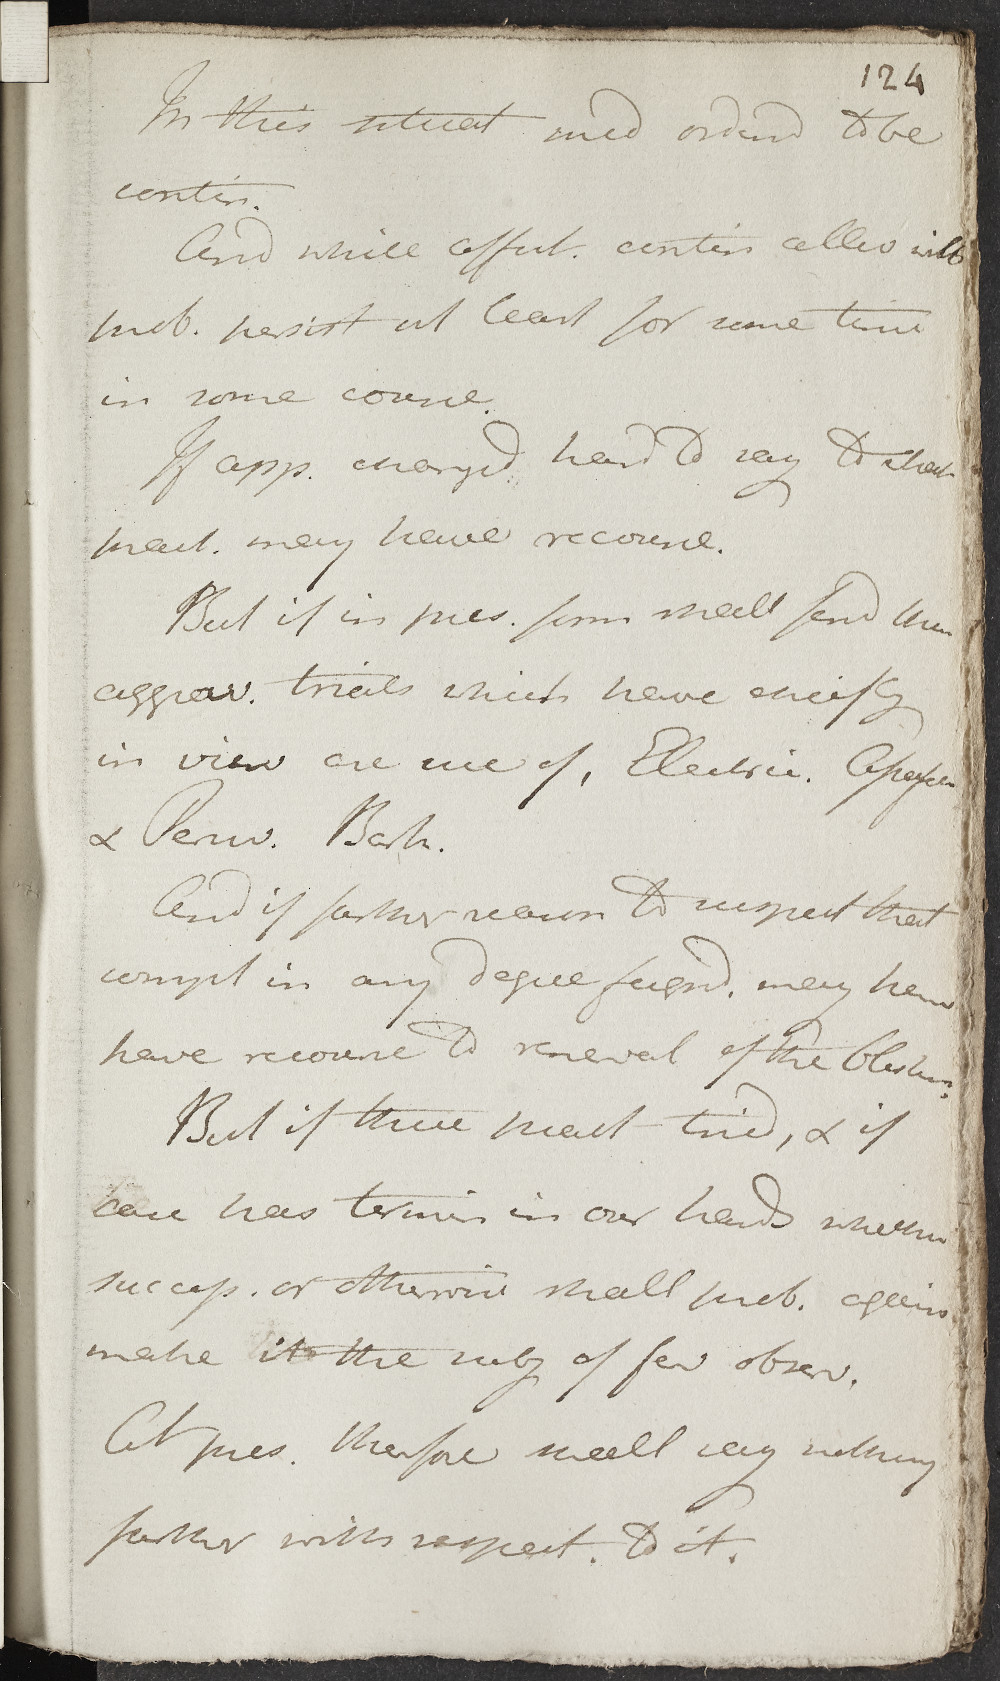 124
In this situat med ordered to be
contin.
And while affect. contin allso will
prob. persist at least for some time
in some course.
If app. changed hard to say to what
pract. may have recourse.
But if in pres. form shall find them
aggrav. trials which have chiefly
in view are use of, Electric.
& Peruv. Bark.
And if farther reason to suspect that
compl in any degree feignd. may here
have recourse to renewal of the blisters.
But if these pract tried, & if
case has termin in our hands whether
success. or otherwise shall prob. again
make it the subj of few observ.
At pres. therefore shall say nothing
farther with respect. to it.